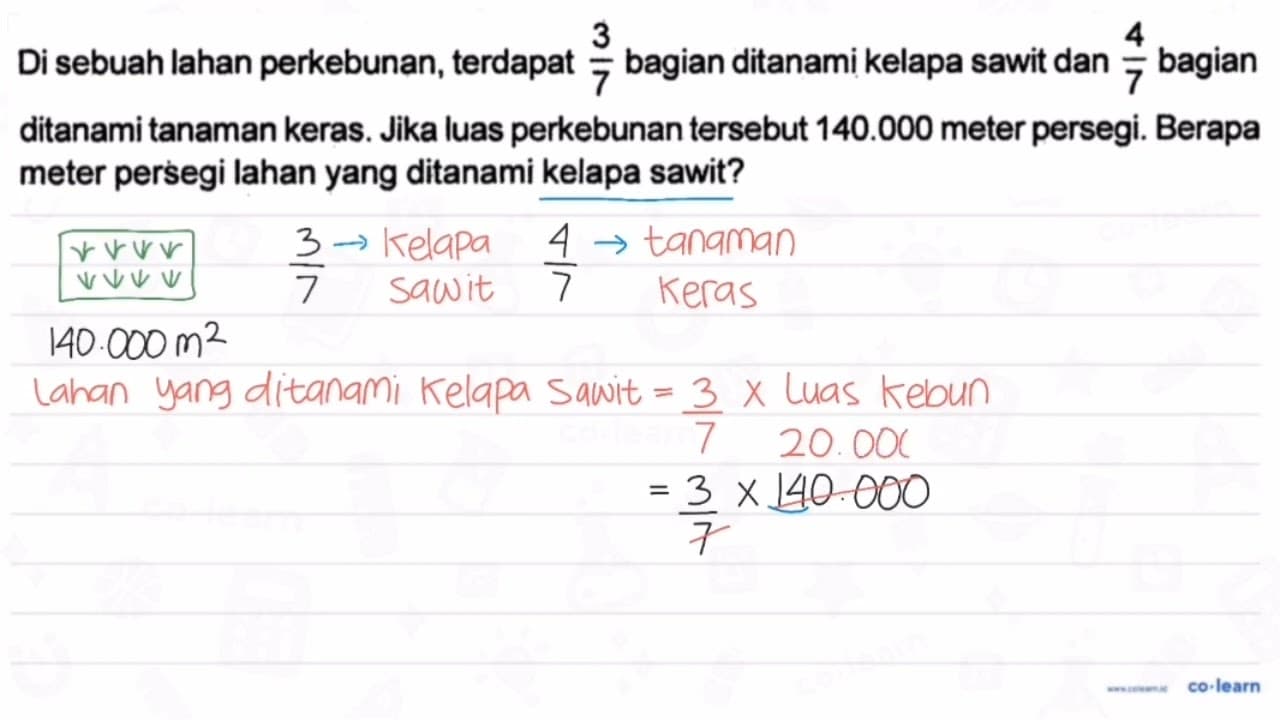 Di sebuah lahan perkebunan, terdapat 3/7 bagian ditanami kelapa sawit dan 4/7 bagian
ditanami tanaman keras. Jika luas perkebunan tersebut 140.000 meter persegi. Berapa
meter persegi lahan yang ditanami kelapa sawit?
3/7 → Kelapa sawit 4/7 → tanaman Keras
140.000 m²
Lahan yang ditanami Kelapa Sawit = 3/7 x Luas Kebun
20.00
= 3/7 x 140.000
www.colearn.id co·learn